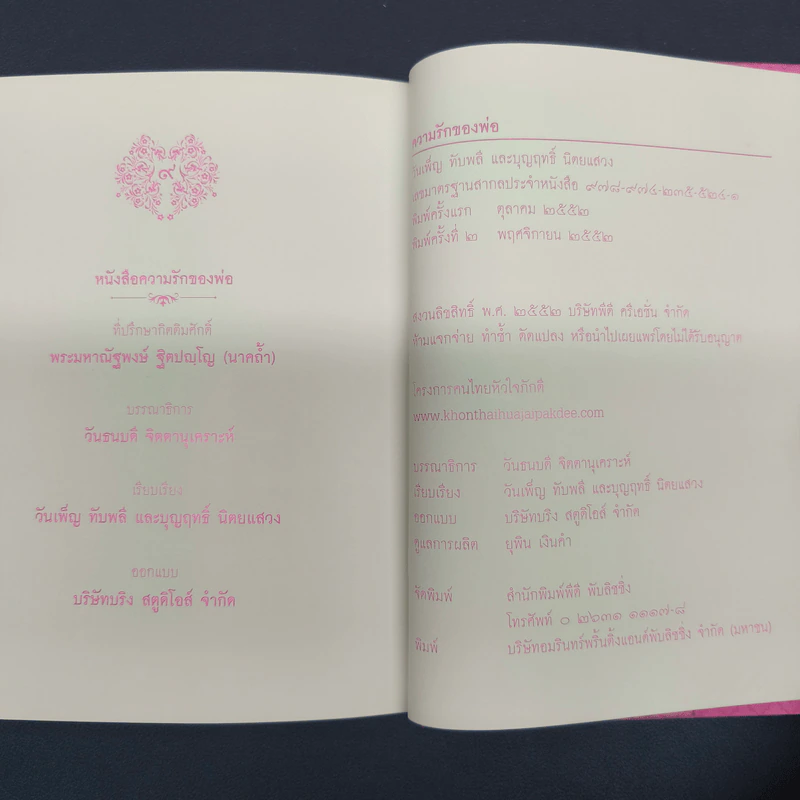 ๙
หนังสือความรักของพ่อ
ที่ปรึกษากิตติมศักดิ์
พระมหาณัฐพงษ์ ฐิตปญฺโญ (นาคถ้ำ)
บรรณาธิการ
วันธนบดี จิตตานุเคราะห์
เรียบเรียง
วันเพ็ญ ทับพลี และบุญฤทธิ์ นิตยแสวง
ออกแบบ
บริษัทบริง สตูดิโอส์ จำกัด
ความรักของพ่อ
วันเพ็ญ ทับพลี และบุญฤทธิ์ นิตยแสวง
เลขมาตรฐานสากลประจำหนังสือ ๙๗๘-๙๗๔-๒๓๕-๕๒๔-๑
พิมพ์ครั้งแรก ตุลาคม ๒๕๕๒
พิมพ์ครั้งที่ ๒ พฤศจิกายน ๒๕๕๒
สงวนลิขสิทธิ์ พ.ศ. ๒๕๕๒ บริษัทพีดี ครีเอชั่น จำกัด
ห้ามแจกจ่าย ทำซ้ำ ดัดแปลง หรือนำไปเผยแพร่โดยไม่ได้รับอนุญาต
โครงการคนไทยหัวใจภักดี
www.khonthaihuajaipakdee.com
บรรณาธิการ วันธนบดี จิตตานุเคราะห์
เรียบเรียง วันเพ็ญ ทับพลี และบุญฤทธิ์ นิตยแสวง
ออกแบบ บริษัทบริง สตูดิโอส์ จำกัด
ดูแลการผลิต ยุพิน เงินคำ
จัดพิมพ์ สำนักพิมพ์พีดี พับลิชชิ่ง
โทรศัพท์ ๐ ๒๖๓๑ ๑๑๑๗-๘
พิมพ์ บริษัทอมรินทร์พริ้นติ้งแอนด์พับลิชชิ่ง จำกัด (มหาชน)